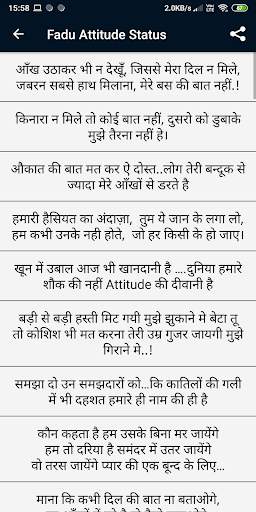 15:58 2.0KB/s 67
Fadu Attitude Status
आँख उठाकर भी न देखूँ, जिससे मेरा दिल न मिले,
जबरन सबसे हाथ मिलाना, मेरे बस की बात नहीं.!
किनारा न मिले तो कोई बात नहीं, दुसरो को डुबाके
मुझे तैरना नहीं हे।
औकात की बात मत कर ऐ दोस्त..लोग तेरी बन्दूक से
ज्यादा मेरे आँखों से डरते है
हमारी हैसियत का अंदाज़ा, तुम ये जान के लगा लो,
हम कभी उनके नही होते, जो हर किसी के हो जाए।
खून में उबाल आज भी खानदानी है ....दुनिया हमारे
शौक की नहीं Attitude की दीवानी है
बड़ी से बड़ी हस्ती मिट गयी मुझे झुकाने मे बेटा तू
तो कोशिश भी मत करना तेरी उम्र गुजर जायगी मुझे
गिराने मे..!
समझा दो उन समझदारों को...कि कातिलों की गली
में भी दहशत हमारे ही नाम की ही है
कौन कहता है हम उसके बिना मर जायेंगे
हम तो दरिया है समंदर में उतर जायेंगे
वो तरस जायेंगे प्यार की एक बून्द के लिए...
माना कि कभी दिल की बात ना बताओगे,